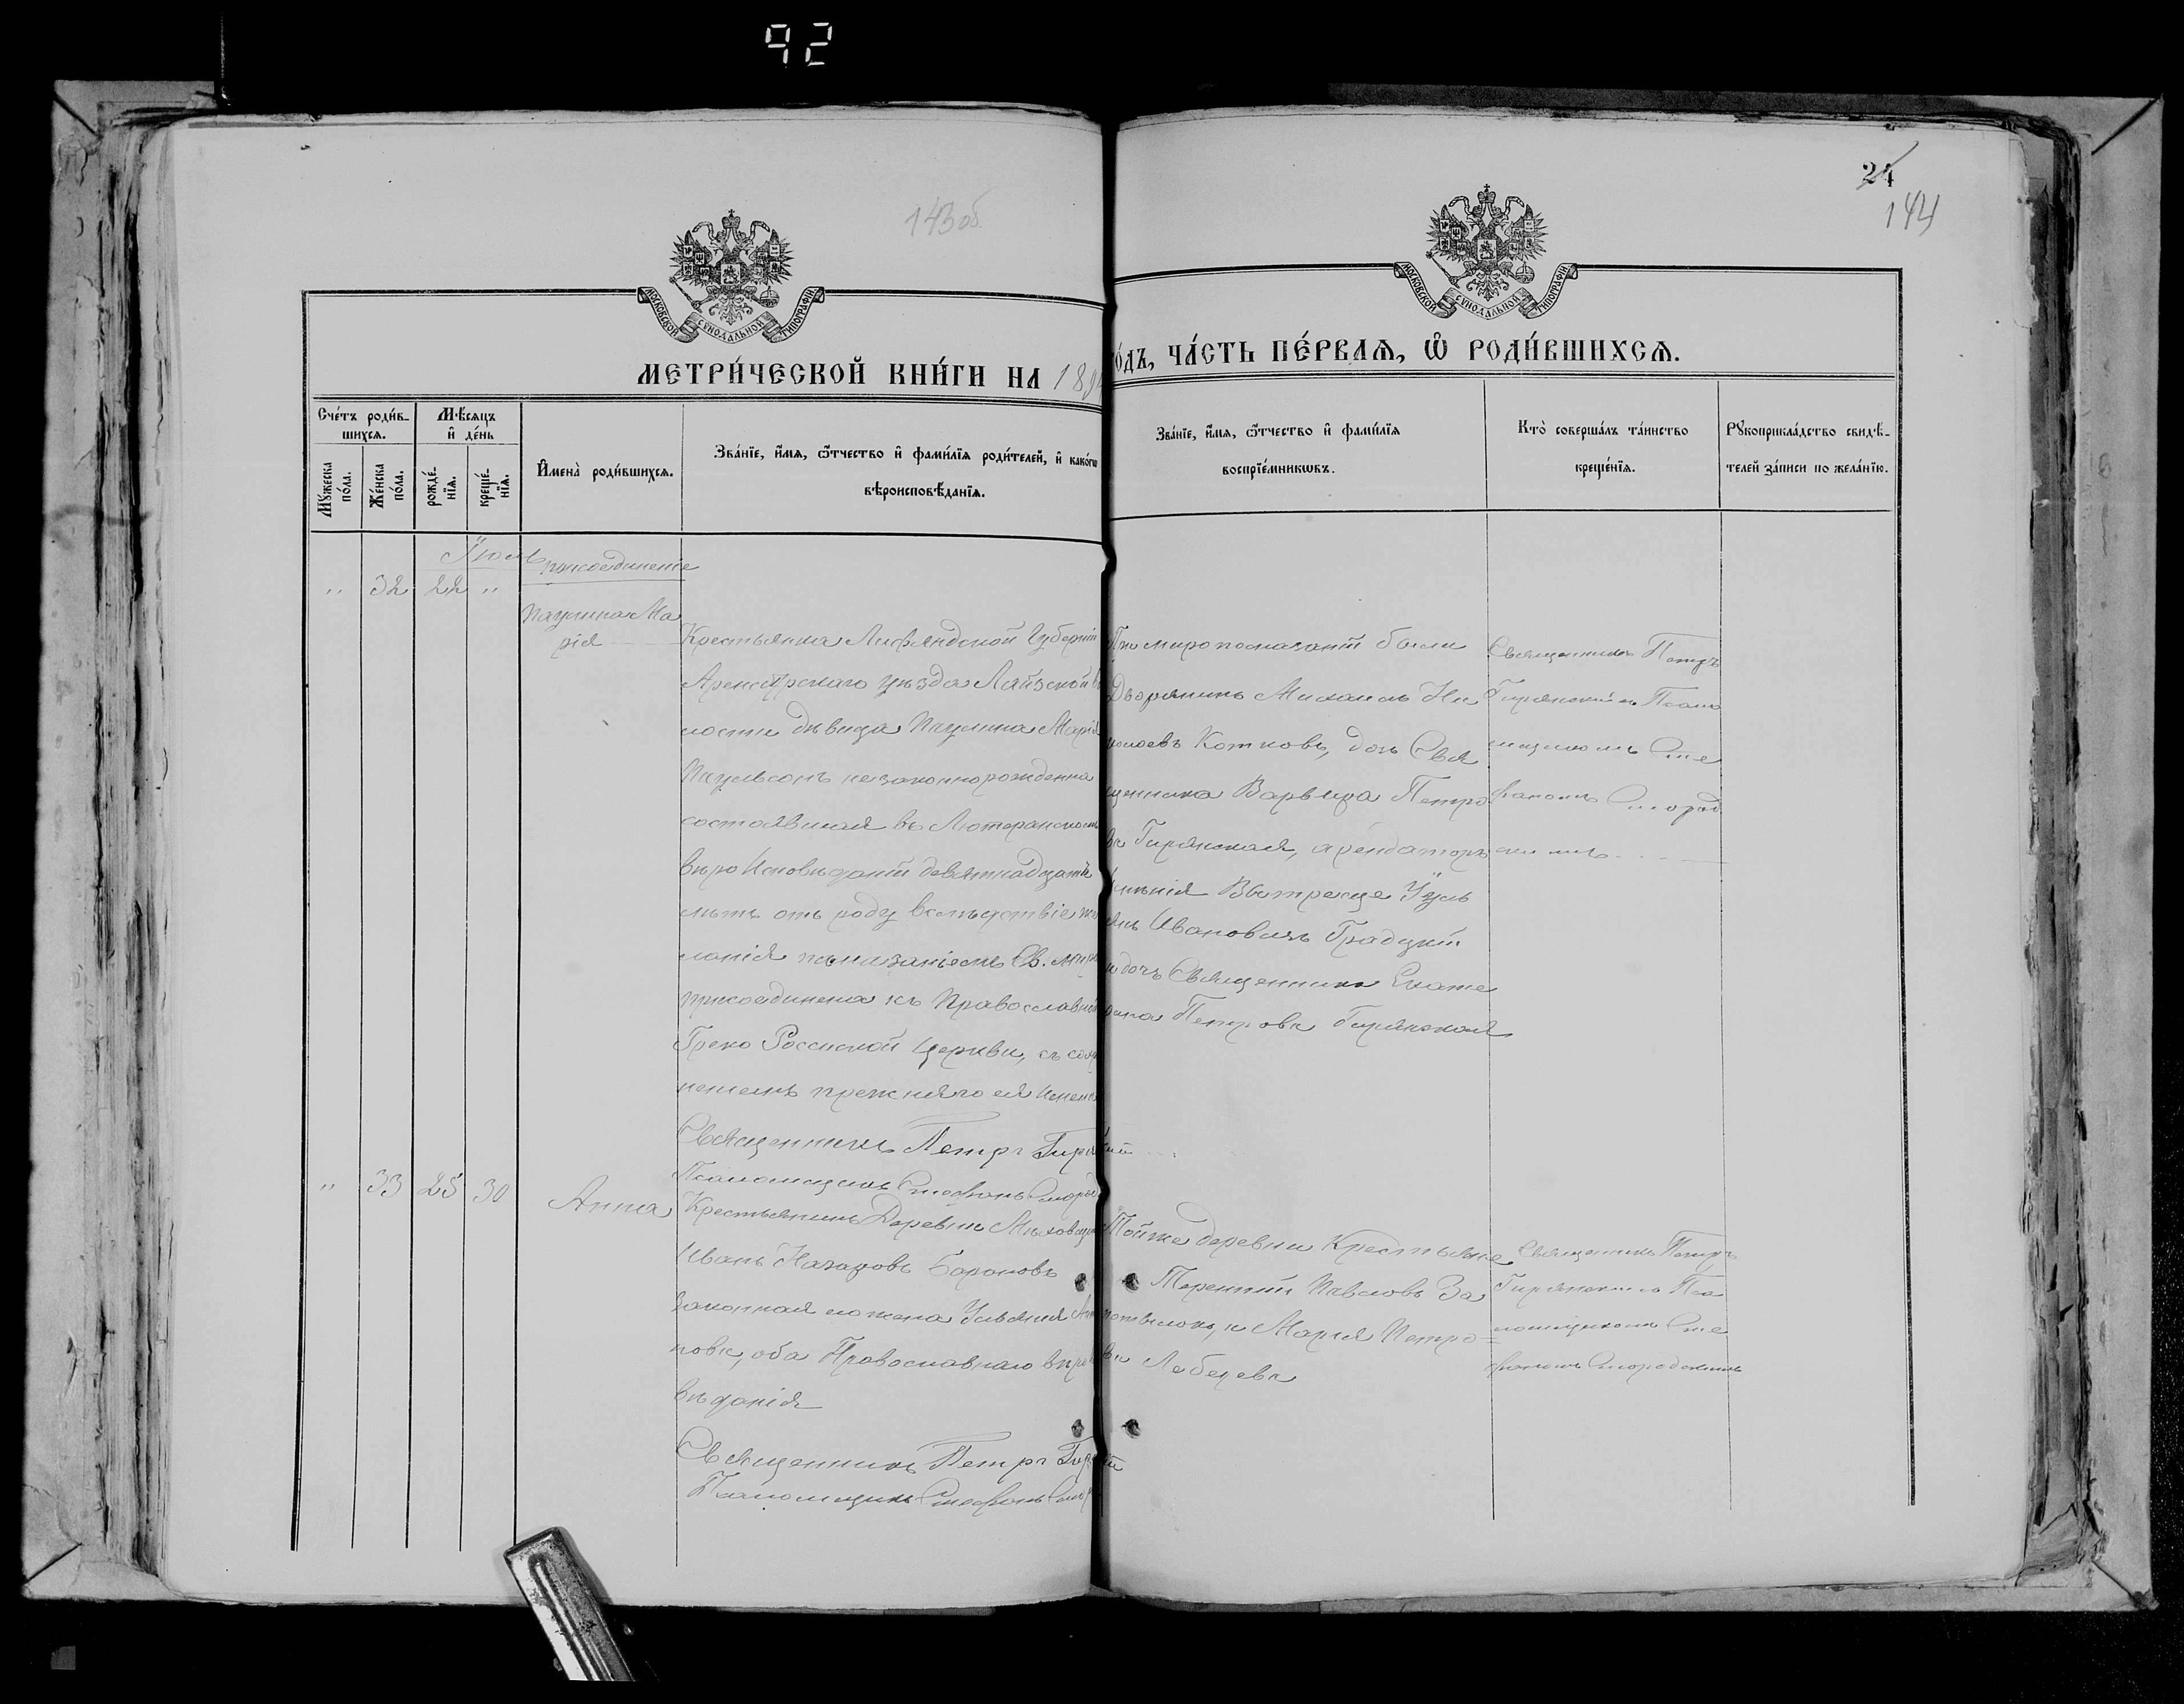 92
143 об.
24
144
МОСКОВСКОЙ СѴНОДАЛЬНОЙ ТИПОГРАФІИ
МОСКОВСКОЙ СѴНОДАЛЬНОЙ ТИПОГРАФІИ
МЕТРИ́ЧЕСКОЙ КНИ́ГИ НА 189
О́ДЪ, ЧА́СТЬ ПЕ́РВАѦ, Ѡ҆ РОДИ́ВШИХСѦ.
Сче́тъ роди́в-
шихсѧ.
Мѣ́сѧцъ
и҆ де́нь
Мꙋ́жеска
по́ла.
Же́нска
по́ла.
рожде́-
нїѧ.
креще́-
нїѧ.
И҆мена̀ роди́вшихсѧ.
Зва́нїе, и҆́мѧ, ѻ҆́тчество и҆ фами́лїѧ роди́телей, и҆ како́гѡ
вѣроисповѣ́данїѧ.
Зва́нїе, и҆́мѧ, ѻ҆́тчество и҆ фами́лїѧ
воспрїе́мникѡвъ.
Кто̀ соверша́лъ та́инство
креще́нїѧ.
Рꙋкоприкла́дство свидѣ́-
телей за́писи по жела́нїю.
Іюль
присоединеніе
" 32 22 "
Паулина Ма
рія
Крестьянка Лифляндской Губерніи
Аренсбурскаго уѣзда Ляйзской во
лости дѣвица Паулина Марія
Паульсонъ незаконнорожденна
состоявшая въ Лютеранскомъ
вѣроисповѣданіи девятнадцати
лѣтъ отъ роду вслѣдствіе же
ланія помазаніемъ Св. мира
присоединена къ Православной
Греко Россиской Церкви, съ
прежняго ея имени
Священникъ Петръ
Псаломщикъ Стефанъ
При миропомазаніи были
Дворянинъ Михаилъ Ни
колоевъ Котковъ, дочь Свя
щенника Варвара Петро
ва Гирянская, арендаторъ
имѣнія Вытресце
Ивановичъ Градцкій
и дочь Священника Екате
рина Петрова Гирянская
Священникъ Петръ
Гирянскій съ Псало
мщикомъ Сте
фаномъ Смород
скимъ
" 33 25 30
Анна
Крестьянинъ Деревни
Иванъ Назаровъ Барановъ
законная его жена Ульянія
нова, оба Православнаго вѣро
вѣданія
Священникъ Петръ
Псаломщикъ Стефанъ
Тойже деревни Крестьяне
Терентий Павловъ За
и Марія Петро
ва Лебедева
Священникъ Петръ
Гирянскій съ Пса
ломщикомъ Сте
фаномъ Смородскимъ